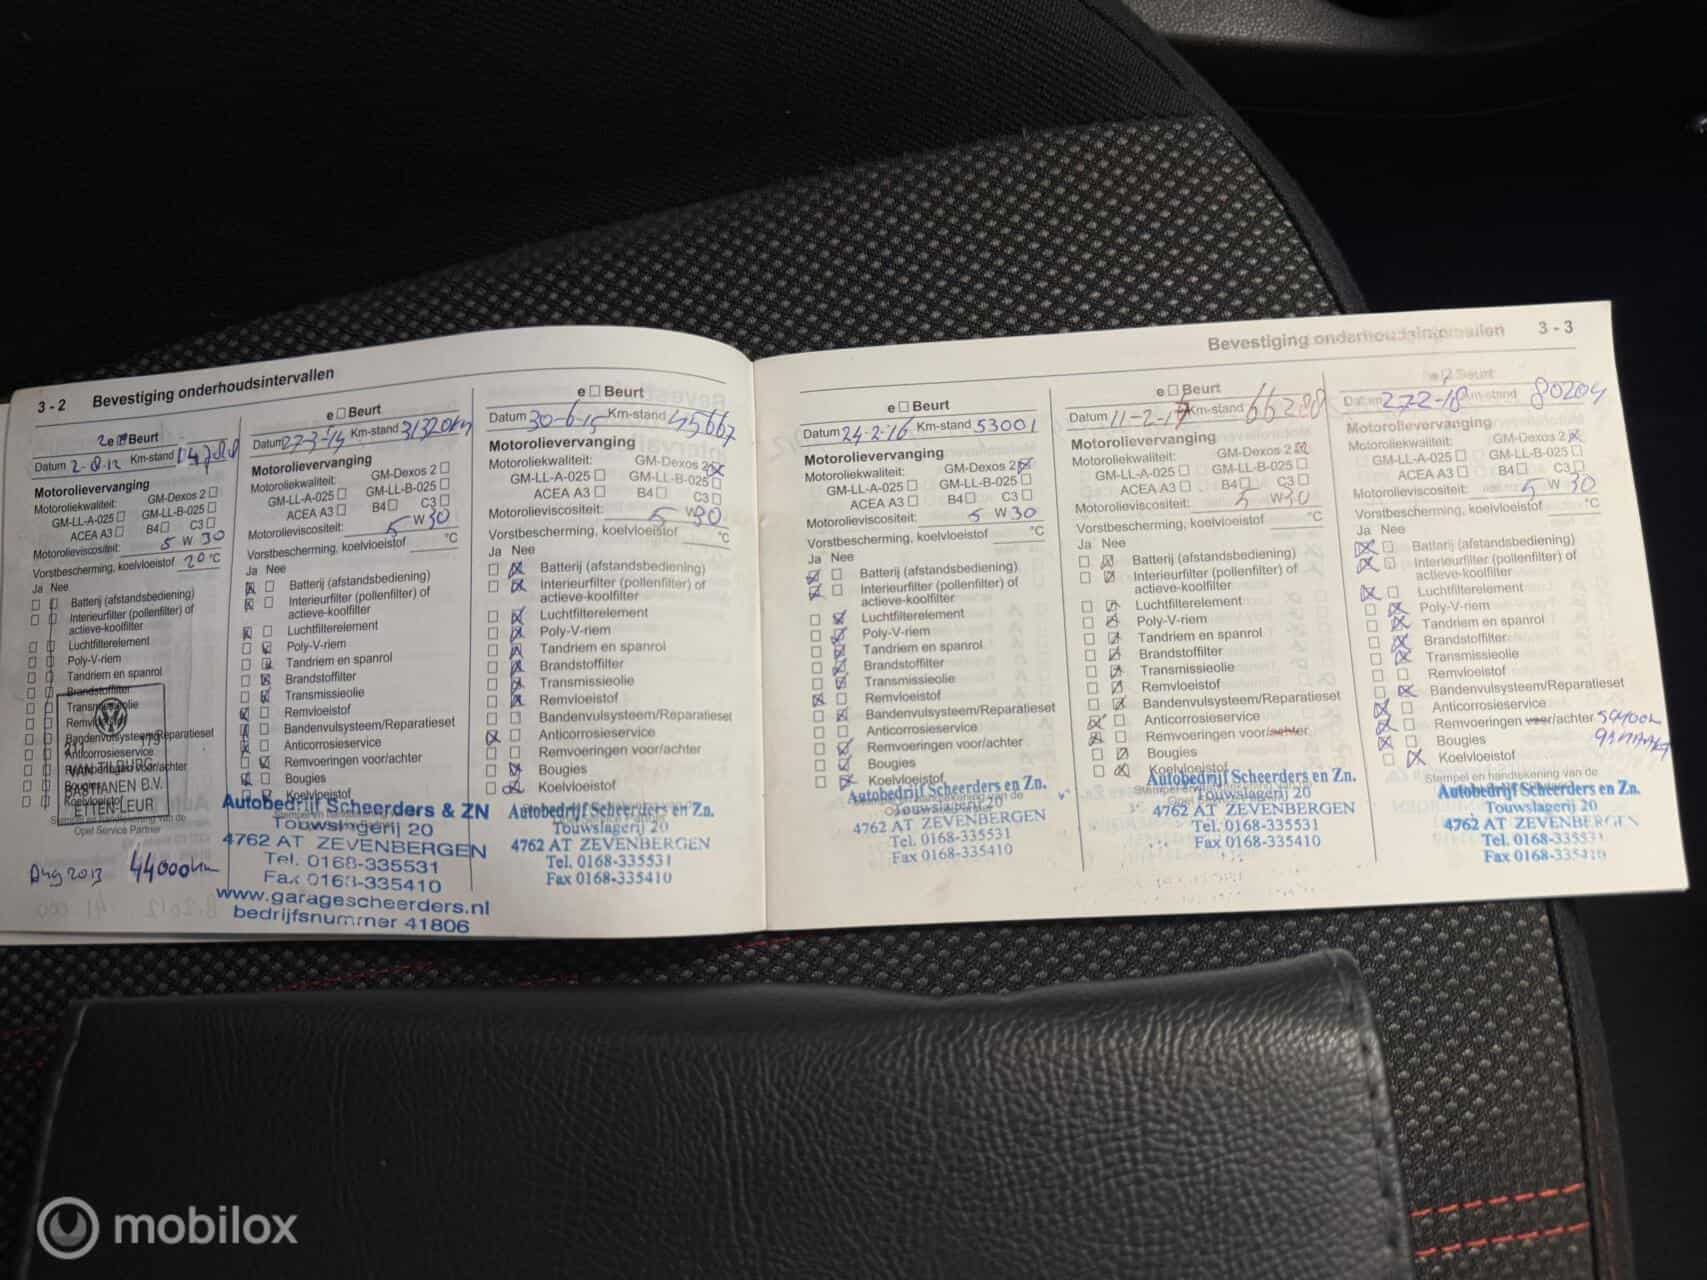 3 - 2 Bevestiging onderhoudsintervallen
2e Beurt
Datum 2-8-12 Km-stand
Motorolievervanging
Motoroliekwaliteit: GM-Dexos 2
GM-LL-A-025 GM-LL-B-025
ACEA A3 B4 C3
Motorolieviscositeit: 5 W 30
Vorstbescherming, koelvloeistof 20 °C
Ja Nee
Batterij (afstandsbediening)
Interieurfilter (pollenfilter) of
actieve-koolfilter
Luchtfilterelement
Poly-V-riem
Tandriem en spanrol
Brandstoffilter
Transmissieolie
Remvloeistof
Bandenvulsysteem/Reparatieset
Anticorrosieservice
Remvoeringen voor/achter
Bougies
Koelvloeistof
211 179
VAN TILBURG
BASTIANEN B.V.
ETTEN-LEUR
Stempel en handtekening van de
Opel Service Partner
Aug 2013 44000km
e Beurt
Datum 27-3-14 Km-stand 31320km
Motorolievervanging
Motoroliekwaliteit: GM-Dexos 2
GM-LL-A-025 GM-LL-B-025
ACEA A3 B4 C3
Motorolieviscositeit: 5 W 30
Vorstbescherming, koelvloeistof °C
Ja Nee
Batterij (afstandsbediening)
Interieurfilter (pollenfilter) of
actieve-koolfilter
Luchtfilterelement
Poly-V-riem
Tandriem en spanrol
Brandstoffilter
Transmissieolie
Remvloeistof
Bandenvulsysteem/Reparatieset
Anticorrosieservice
Remvoeringen voor/achter
Bougies
Koelvloeistof
Autobedrijf Scheerders & ZN
Touwslagerij 20
4762 AT ZEVENBERGEN
Tel. 0168-335531
Fax 0168-335410
www.garagescheerders.nl
bedrijfsnummer 41806
e Beurt
Datum 30-6-15 Km-stand 45667
Motorolievervanging
Motoroliekwaliteit: GM-Dexos 2
GM-LL-A-025 GM-LL-B-025
ACEA A3 B4 C3
Motorolieviscositeit: 5 W 30
Vorstbescherming, koelvloeistof °C
Ja Nee
Batterij (afstandsbediening)
Interieurfilter (pollenfilter) of
actieve-koolfilter
Luchtfilterelement
Poly-V-riem
Tandriem en spanrol
Brandstoffilter
Transmissieolie
Remvloeistof
Bandenvulsysteem/Reparatieset
Anticorrosieservice
Remvoeringen voor/achter
Bougies
Koelvloeistof
Autobedrijf Scheerders en Zn.
Touwslagerij 20
4762 AT ZEVENBERGEN
Tel. 0168-335531
Fax 0168-335410
Bevestiging onderhoudsintervallen 3 - 3
e Beurt
Datum 24-2-16 Km-stand 53001
Motorolievervanging
Motoroliekwaliteit: GM-Dexos 2
GM-LL-A-025 GM-LL-B-025
ACEA A3 B4 C3
Motorolieviscositeit: 5 W 30
Vorstbescherming, koelvloeistof °C
Ja Nee
Batterij (afstandsbediening)
Interieurfilter (pollenfilter) of
actieve-koolfilter
Luchtfilterelement
Poly-V-riem
Tandriem en spanrol
Brandstoffilter
Transmissieolie
Remvloeistof
Bandenvulsysteem/Reparatieset
Anticorrosieservice
Remvoeringen voor/achter
Bougies
Koelvloeistof
Autobedrijf Scheerders en Zn.
Touwslagerij 20
4762 AT ZEVENBERGEN
Tel. 0168-335531
Fax 0168-335410
e Beurt
Datum 11-2-17 Km-stand 66288
Motorolievervanging
Motoroliekwaliteit: GM-Dexos 2
GM-LL-A-025 GM-LL-B-025
ACEA A3 B4 C3
Motorolieviscositeit: 5 W 30
Vorstbescherming, koelvloeistof °C
Ja Nee
Batterij (afstandsbediening)
Interieurfilter (pollenfilter) of
actieve-koolfilter
Luchtfilterelement
Poly-V-riem
Tandriem en spanrol
Brandstoffilter
Transmissieolie
Remvloeistof
Bandenvulsysteem/Reparatieset
Anticorrosieservice
Remvoeringen voor/achter
Bougies
Koelvloeistof
Autobedrijf Scheerders en Zn.
Touwslagerij 20
4762 AT ZEVENBERGEN
Tel. 0168-335531
Fax 0168-335410
e Beurt
Datum 27-2-18 Km-stand 80204
Motorolievervanging
Motoroliekwaliteit: GM-Dexos 2
GM-LL-A-025 GM-LL-B-025
ACEA A3 B4 C3
Motorolieviscositeit: 5 W 30
Vorstbescherming, koelvloeistof °C
Ja Nee
Batterij (afstandsbediening)
Interieurfilter (pollenfilter) of
actieve-koolfilter
Luchtfilterelement
Poly-V-riem
Tandriem en spanrol
Brandstoffilter
Transmissieolie
Remvloeistof
Bandenvulsysteem/Reparatieset
Anticorrosieservice
Remvoeringen voor/achter
Bougies
Koelvloeistof
Stempel en handtekening van de
Autobedrijf Scheerders en Zn.
Touwslagerij 20
4762 AT ZEVENBERGEN
Tel. 0168-335531
Fax 0168-335410
mobilox